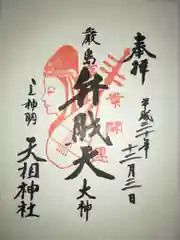 奉拝
平成三十年
十二月三日
厳島
弁財天
大神
天祖神社